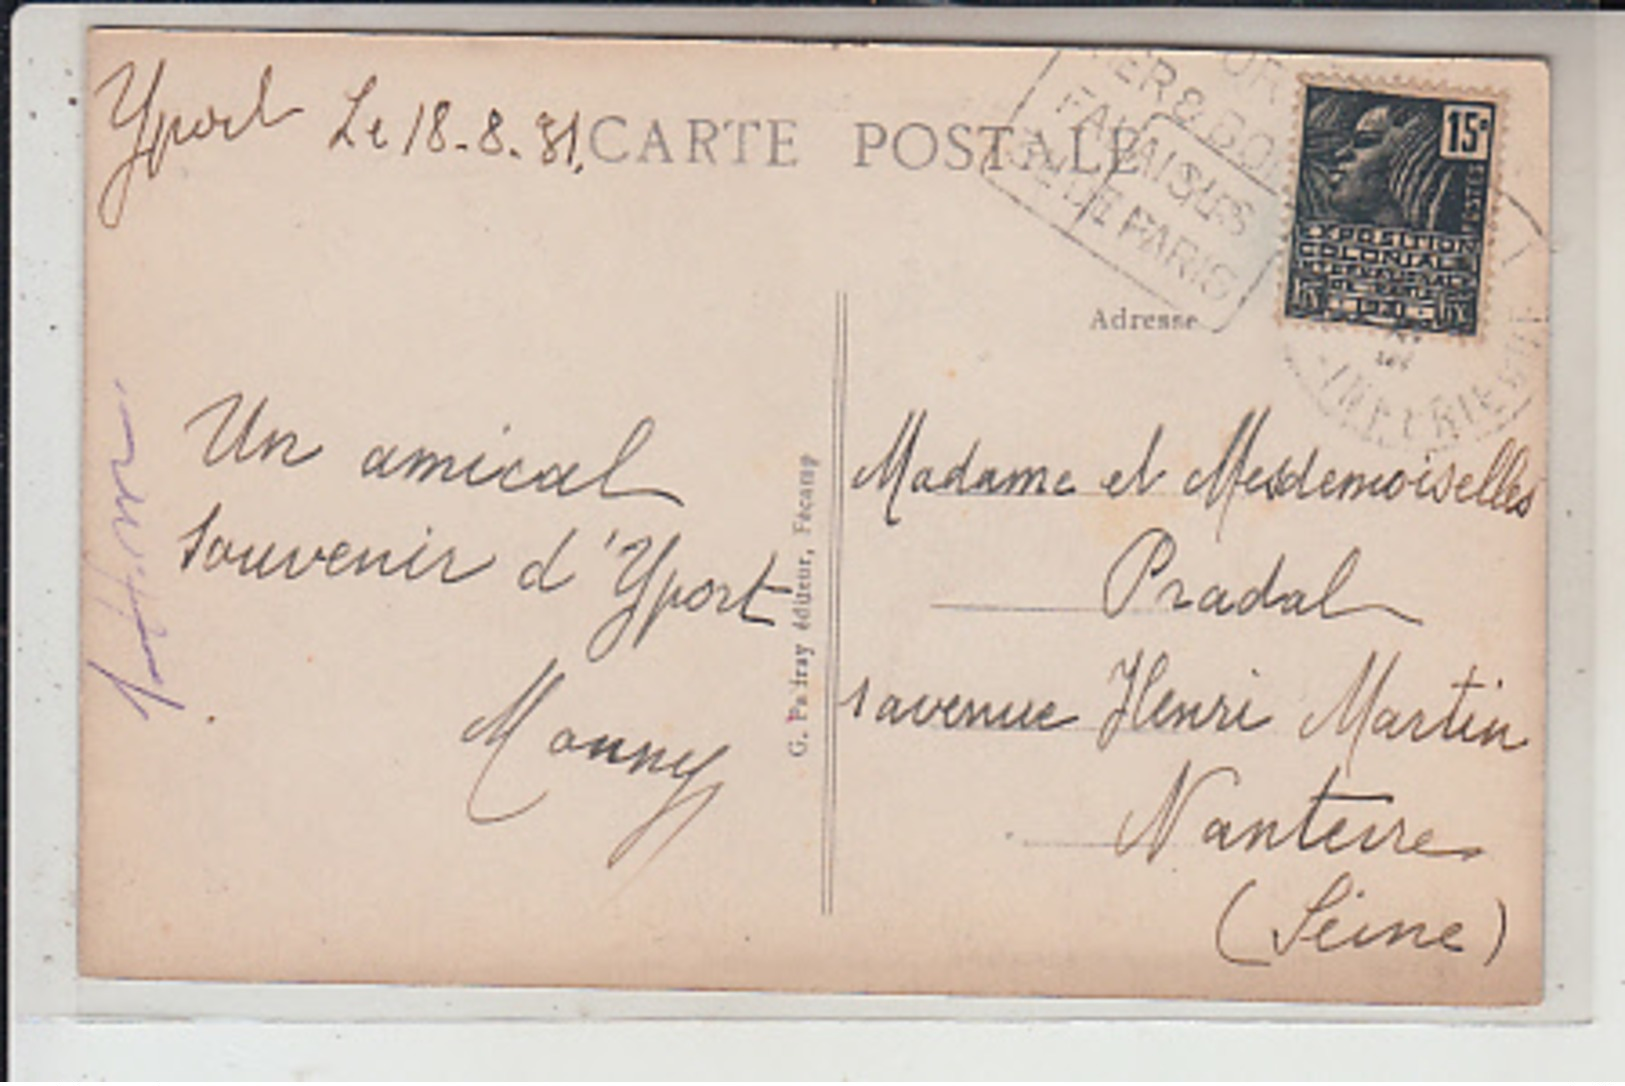 Yport Le 18-8.31.
CARTE POSTALE
MER & BOIS
FALAISES
DE PARIS
15c
POSTES
EXPOSITION
COLONIALE
INTERNATIONALE
DE PARIS
1931
Adresse
SEINE INFERIEURE
Un amical
souvenir d'Yport
Monny
G. Paray éditeur, Fécamp
Madame et Mesdemoiselles
Pradal
1 avenue Henri Martin
Nanterre
(Seine)